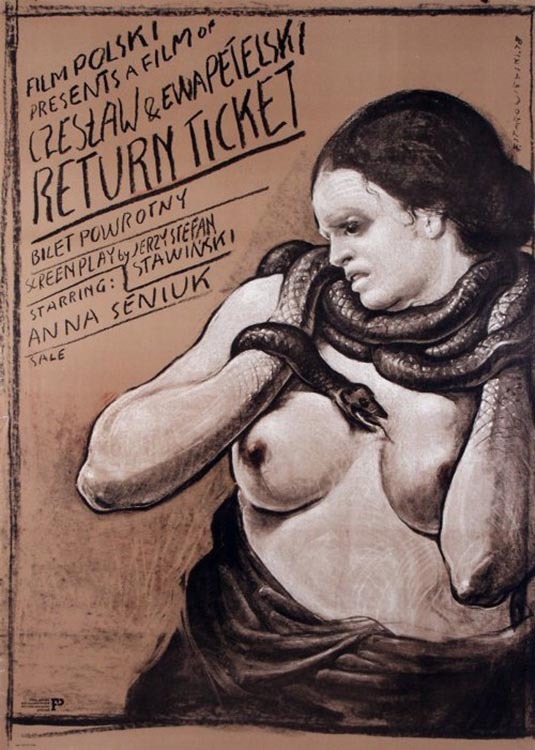 FILM POLSKI
PRESENTS A FILM OF
CZESŁAW & EWA PETELSKI
RETURN TICKET
BILET POWROTNY
SCREENPLAY by JERZY STEFAN
STAWIŃSKI
STARRING:
ANNA SENIUK
SALE